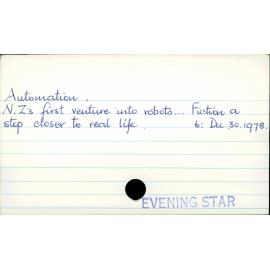 Automation.
N.Z's first venture into robots... Fiction a
step closer to real life. 6: Dec 30. 1978.
EVENING STAR